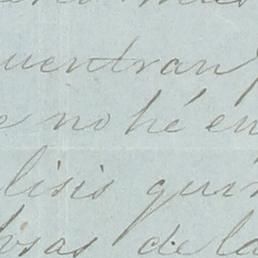 uentran
no hé en
lisis quim
osas de la